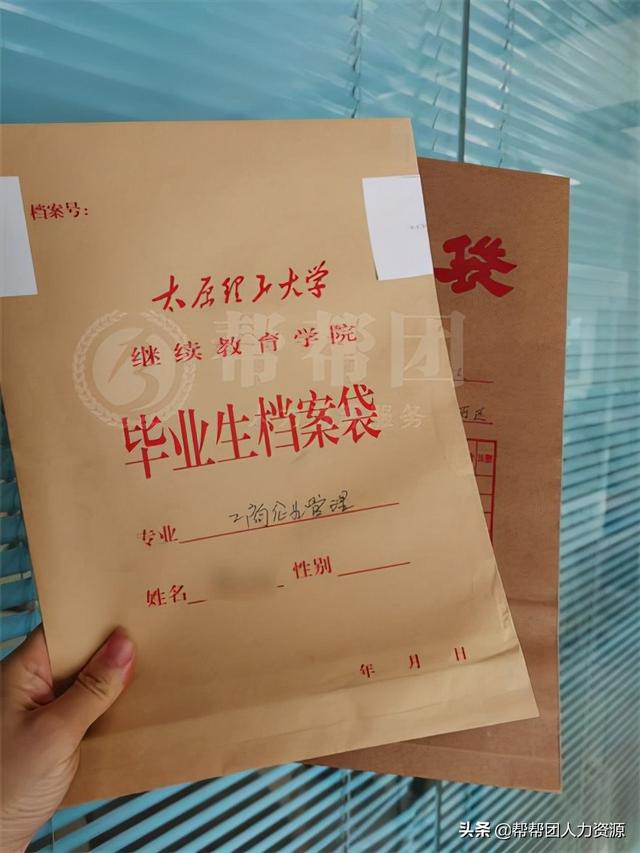 档案号:
太原理工大学
继续教育学院
毕业生档案袋
专业 工商企业管理
姓名 性别
年 月 日
袋
帮帮团
服务
头条 @帮帮团人力资源